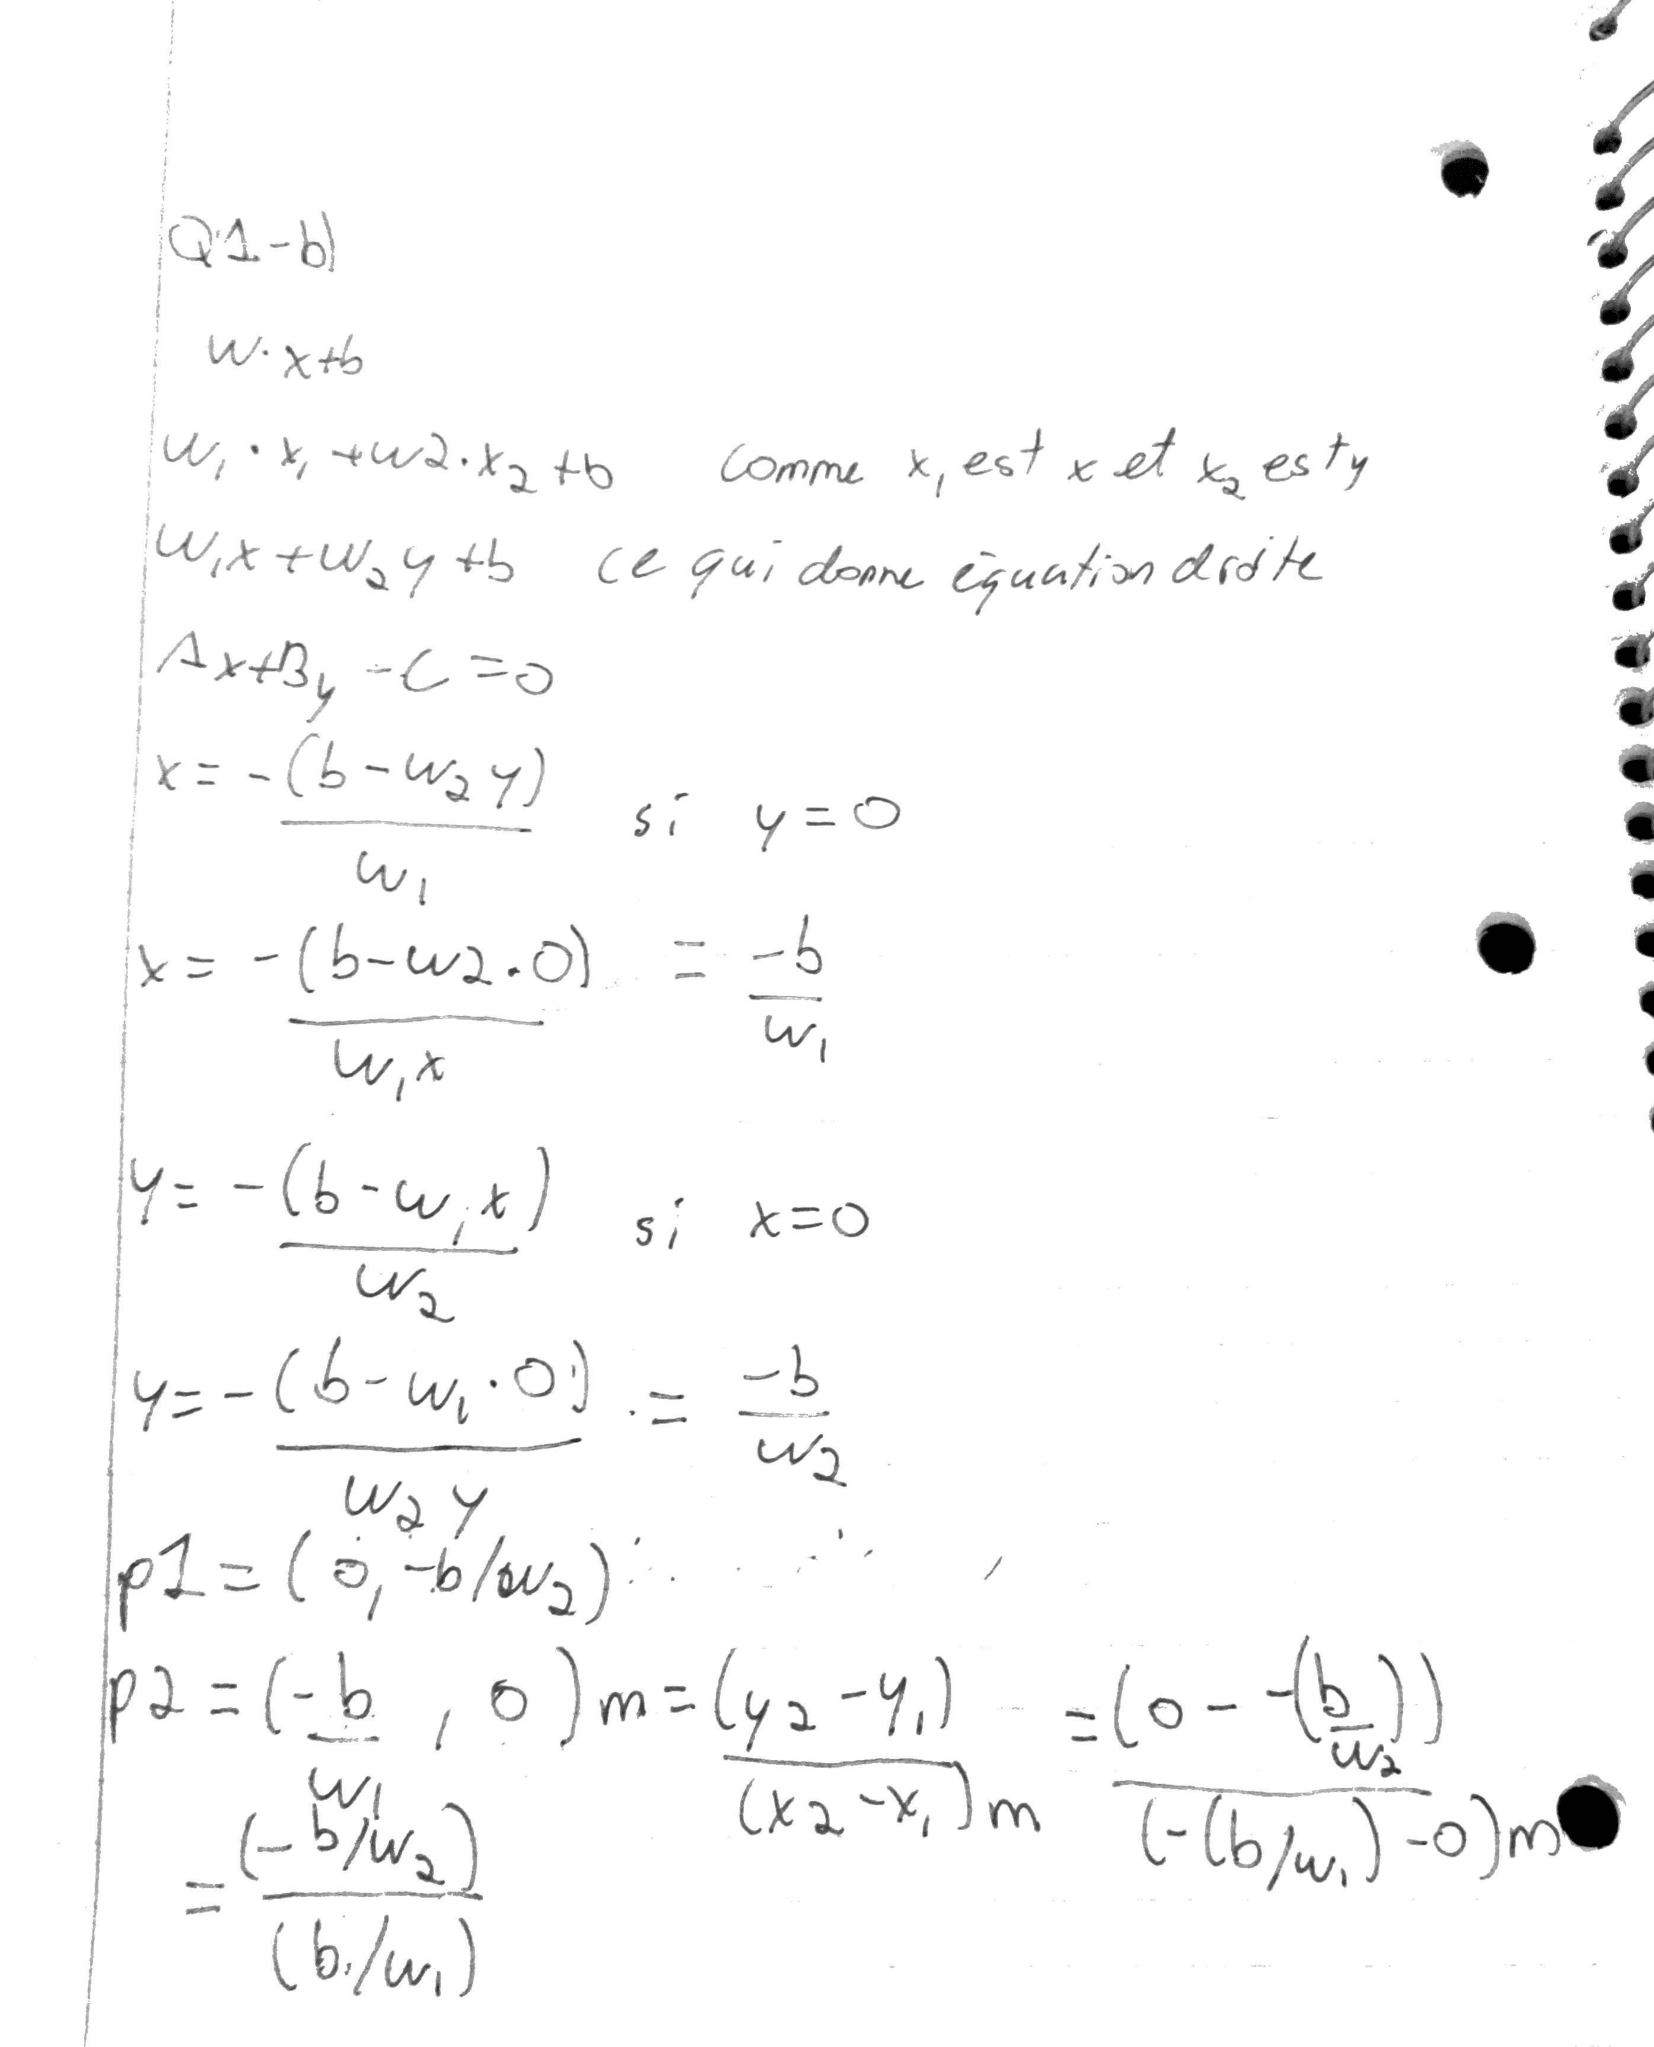 Q1-b)
w·x+b
w₁·x₁+w2·x₂+b comme x₁ est x et x₂ est y
w₁x+w₂y+b ce qui donne équation droite
Ax+By-C=0
x=-(b-w₂y)/w₁ si y=0
x=-(b-w2·0)/w₁x = -b/w₁
y=-(b-w₁x)/w₂ si x=0
y=-(b-w₁·0)/w₂y = -b/w₂
p1=(0,-b/w₂)
p2=(-b/w₁, 0) m=(y2-y₁)/(x2-x₁)m =(0--(b/w₂))/(-(b/w₁)-0)m
=(-b/w₂)/(b/w₁)